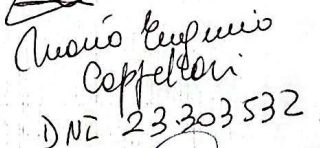 Maria Eugenia
Cappellari
DNI 23.303532